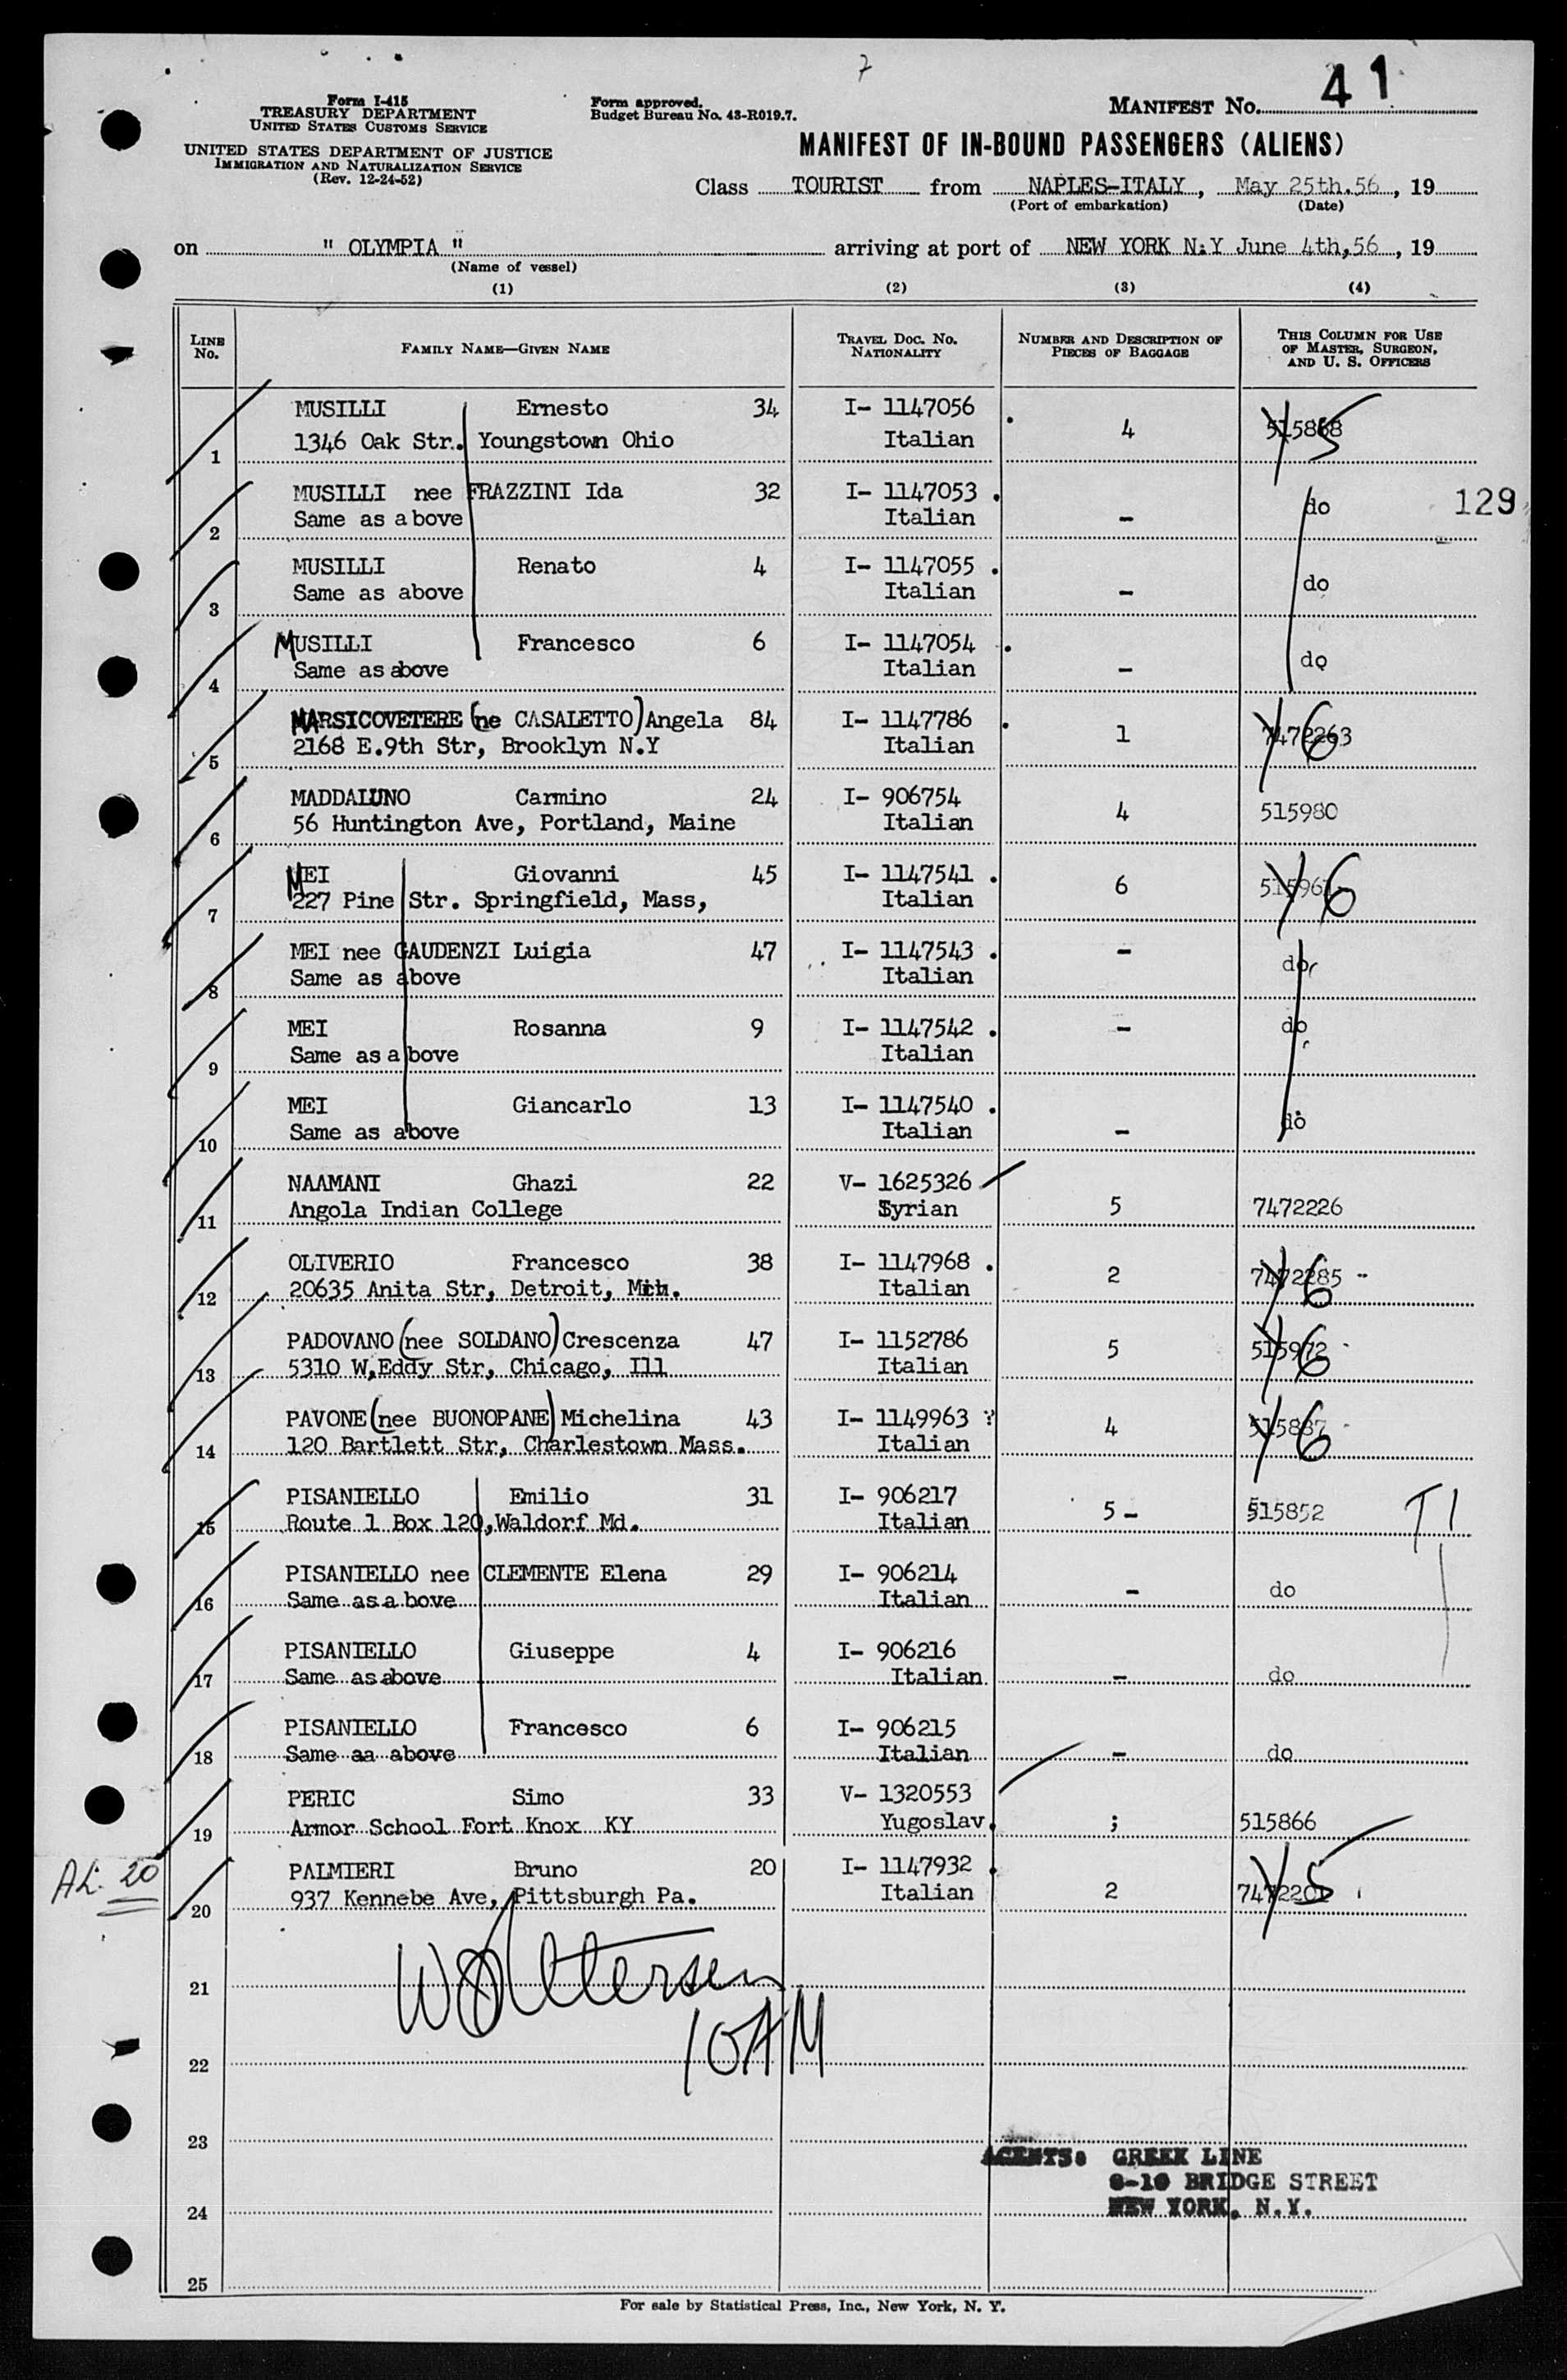 7
41
Form I-415
TREASURY DEPARTMENT
UNITED STATES CUSTOMS SERVICE
UNITED STATES DEPARTMENT OF JUSTICE
IMMIGRATION AND NATURALIZATION SERVICE
(Rev. 12-24-52)
Form approved.
Budget Bureau No. 43-R019.7.
MANIFEST No.
MANIFEST OF IN-BOUND PASSENGERS (ALIENS)
Class TOURIST from NAPLES-ITALY, May 25th.56, 19
(Port of embarkation) (Date)
on " OLYMPIA " arriving at port of NEW YORK N.Y June 4th,56, 19
(Name of vessel)
(1) (2) (3) (4)
LINE No. FAMILY NAME—GIVEN NAME TRAVEL DOC. No. NATIONALITY NUMBER AND DESCRIPTION OF PIECES OF BAGGAGE THIS COLUMN FOR USE OF MASTER, SURGEON, AND U. S. OFFICERS
MUSILLI Ernesto 34 I- 1147056 4 515868 Y5
1 1346 Oak Str. Youngstown Ohio Italian
MUSILLI nee FRAZZINI Ida 32 I- 1147053 . do 129
2 Same as above Italian -
MUSILLI Renato 4 I- 1147055 . do
3 Same as above Italian -
MUSILLI Francesco 6 I- 1147054 . do
4 Same as above Italian -
MARSICOVETERE (ne CASALETTO) Angela 84 I- 1147786 . 1 7472263 Y6
5 2168 E.9th Str, Brooklyn N.Y Italian
MADDALUNO Carmino 24 I- 906754 4 515980
6 56 Huntington Ave, Portland, Maine Italian
MEI Giovanni 45 I- 1147541 . 6 Y6
7 227 Pine Str. Springfield, Mass, Italian
MEI nee GAUDENZI Luigia 47 I- 1147543 . - do
8 Same as above Italian
MEI Rosanna 9 I- 1147542 . - do
9 Same as above Italian
MEI Giancarlo 13 I- 1147540 . do
10 Same as above Italian -
NAAMANI Ghazi 22 V- 1625326
11 Angola Indian College Syrian 5 7472226
OLIVERIO Francesco 38 I- 1147968 . 2 7472285 - Y6
12 20635 Anita Str, Detroit, Mich. Italian
PADOVANO (nee SOLDANO) Crescenza 47 I- 1152786 5 515972 - Y6
13 5310 W,Eddy Str, Chicago, Ill Italian
PAVONE (nee BUONOPANE) Michelina 43 I- 1149963 ? 4 515887 - Y6
14 120 Bartlett Str, Charlestown Mass. Italian
PISANIELLO Emilio 31 I- 906217 5 - 515852 T1
15 Route 1 Box 120,Waldorf Md. Italian
PISANIELLO nee CLEMENTE Elena 29 I- 906214 - do
16 Same as a bove Italian
PISANIELLO Giuseppe 4 I- 906216
17 Same as above Italian - do
PISANIELLO Francesco 6 I- 906215
18 Same aa above Italian - do
PERIC Simo 33 V- 1320553
19 Armor School Fort Knox KY Yugoslav. ; 515866
AL. 20
PALMIERI Bruno 20 I- 1147932 .
20 937 Kennebe Ave, Pittsburgh Pa. Italian 2 Y5
21
10AM
22
23
AGENTS: GREEK LINE
8-10 BRIDGE STREET
NEW YORK, N.Y.
24
25
For sale by Statistical Press, Inc., New York, N. Y.